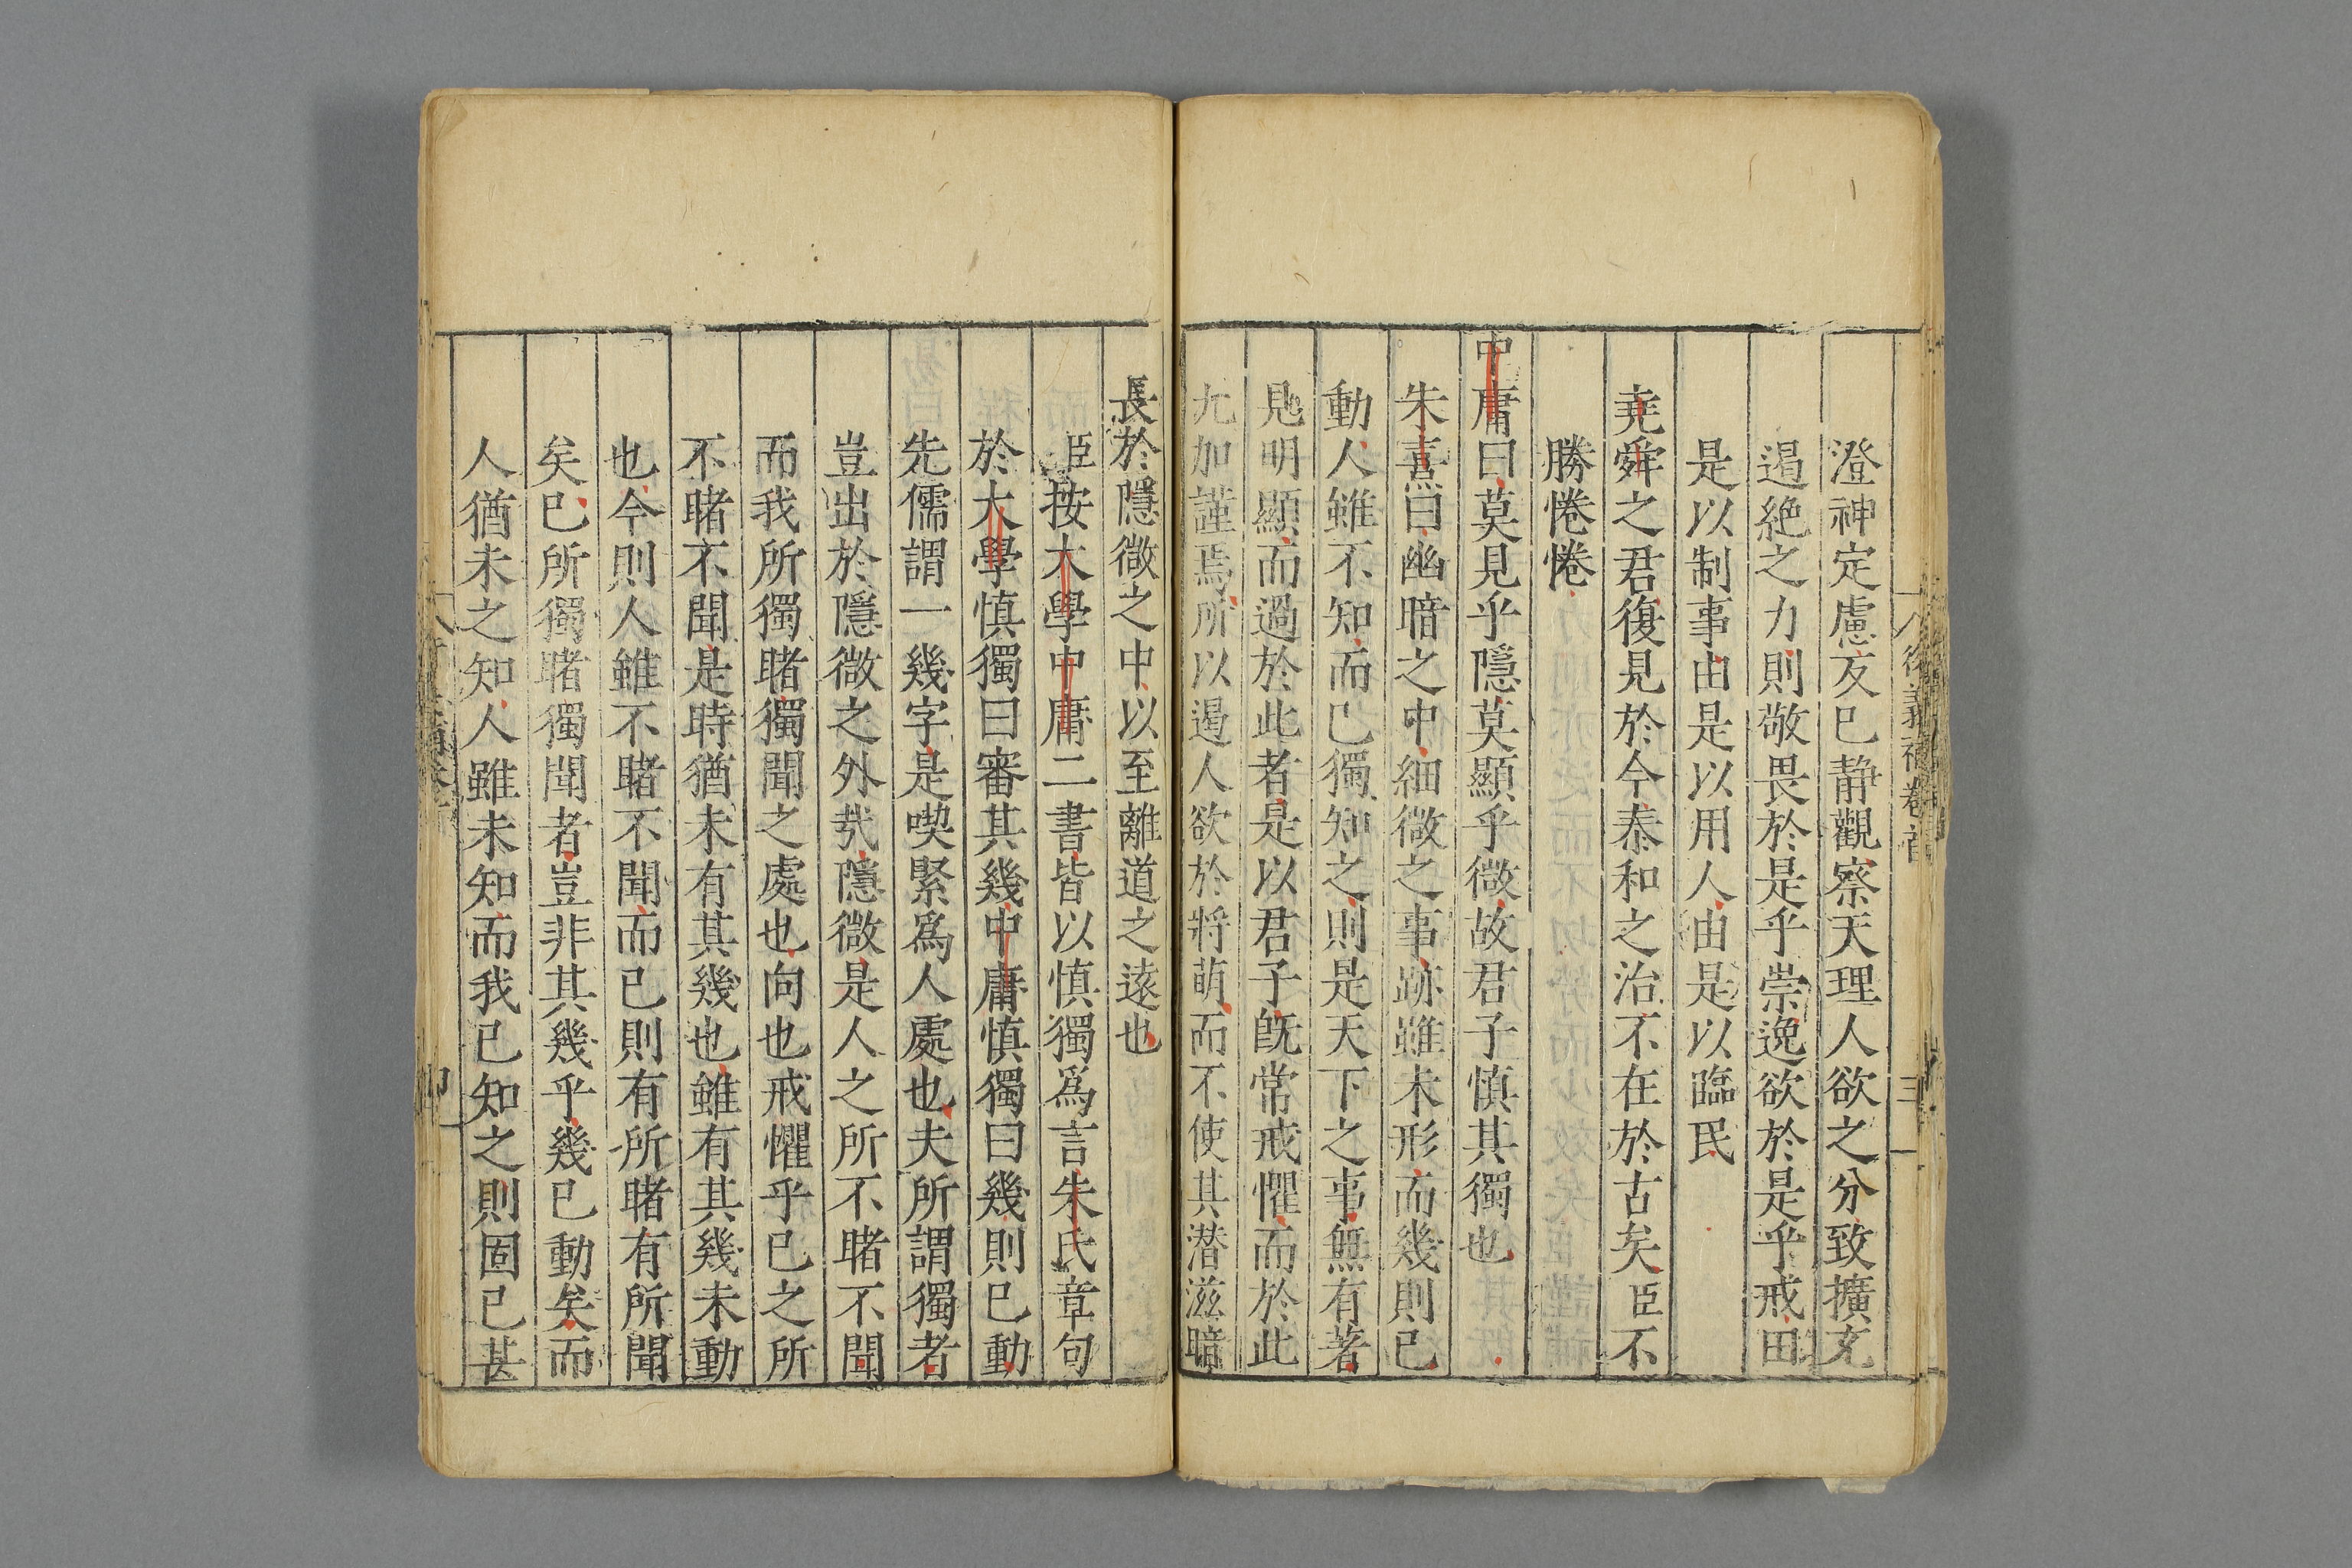 澄神定慮反已静觀察天理人欲之分致擴充
遏絶之力則敬畏於是乎崇逸欲於是乎戒田
是以制事由是以用人由是以臨民
堯舜之君復見於今泰和之治不在於古矣臣不
勝惓惓
中庸曰莫見乎隱莫顯乎微故君子慎其獨也
朱熹曰幽暗之中細微之事跡雖未形而幾則已
動人雖不知而已獨知之則是天下之事無有著
見明顯而過於此者是以君子既常戒懼而於此
尤加謹焉所以遏人欲於將萌而不使其潜滋暗
長於隱微之中以至離道之遠也
臣按大學中庸二書皆以慎獨爲言朱氏章句
於大學慎獨曰審其幾中庸慎獨曰幾則已動
先儒謂一幾字是喫緊爲人處也夫所謂獨者
豈出於隱微之外哉隱微是人之所不睹不聞
而我所獨睹獨聞之處也向也戒懼乎已之所
不睹不聞是時猶未有其幾也雖有其幾未動
也今則人雖不睹不聞而已則有所睹有所聞
矣已所獨睹獨聞者豈非其幾乎幾已動矣而
人猶未之知人雖未知而我已知之則固已甚
衍義補卷首
三